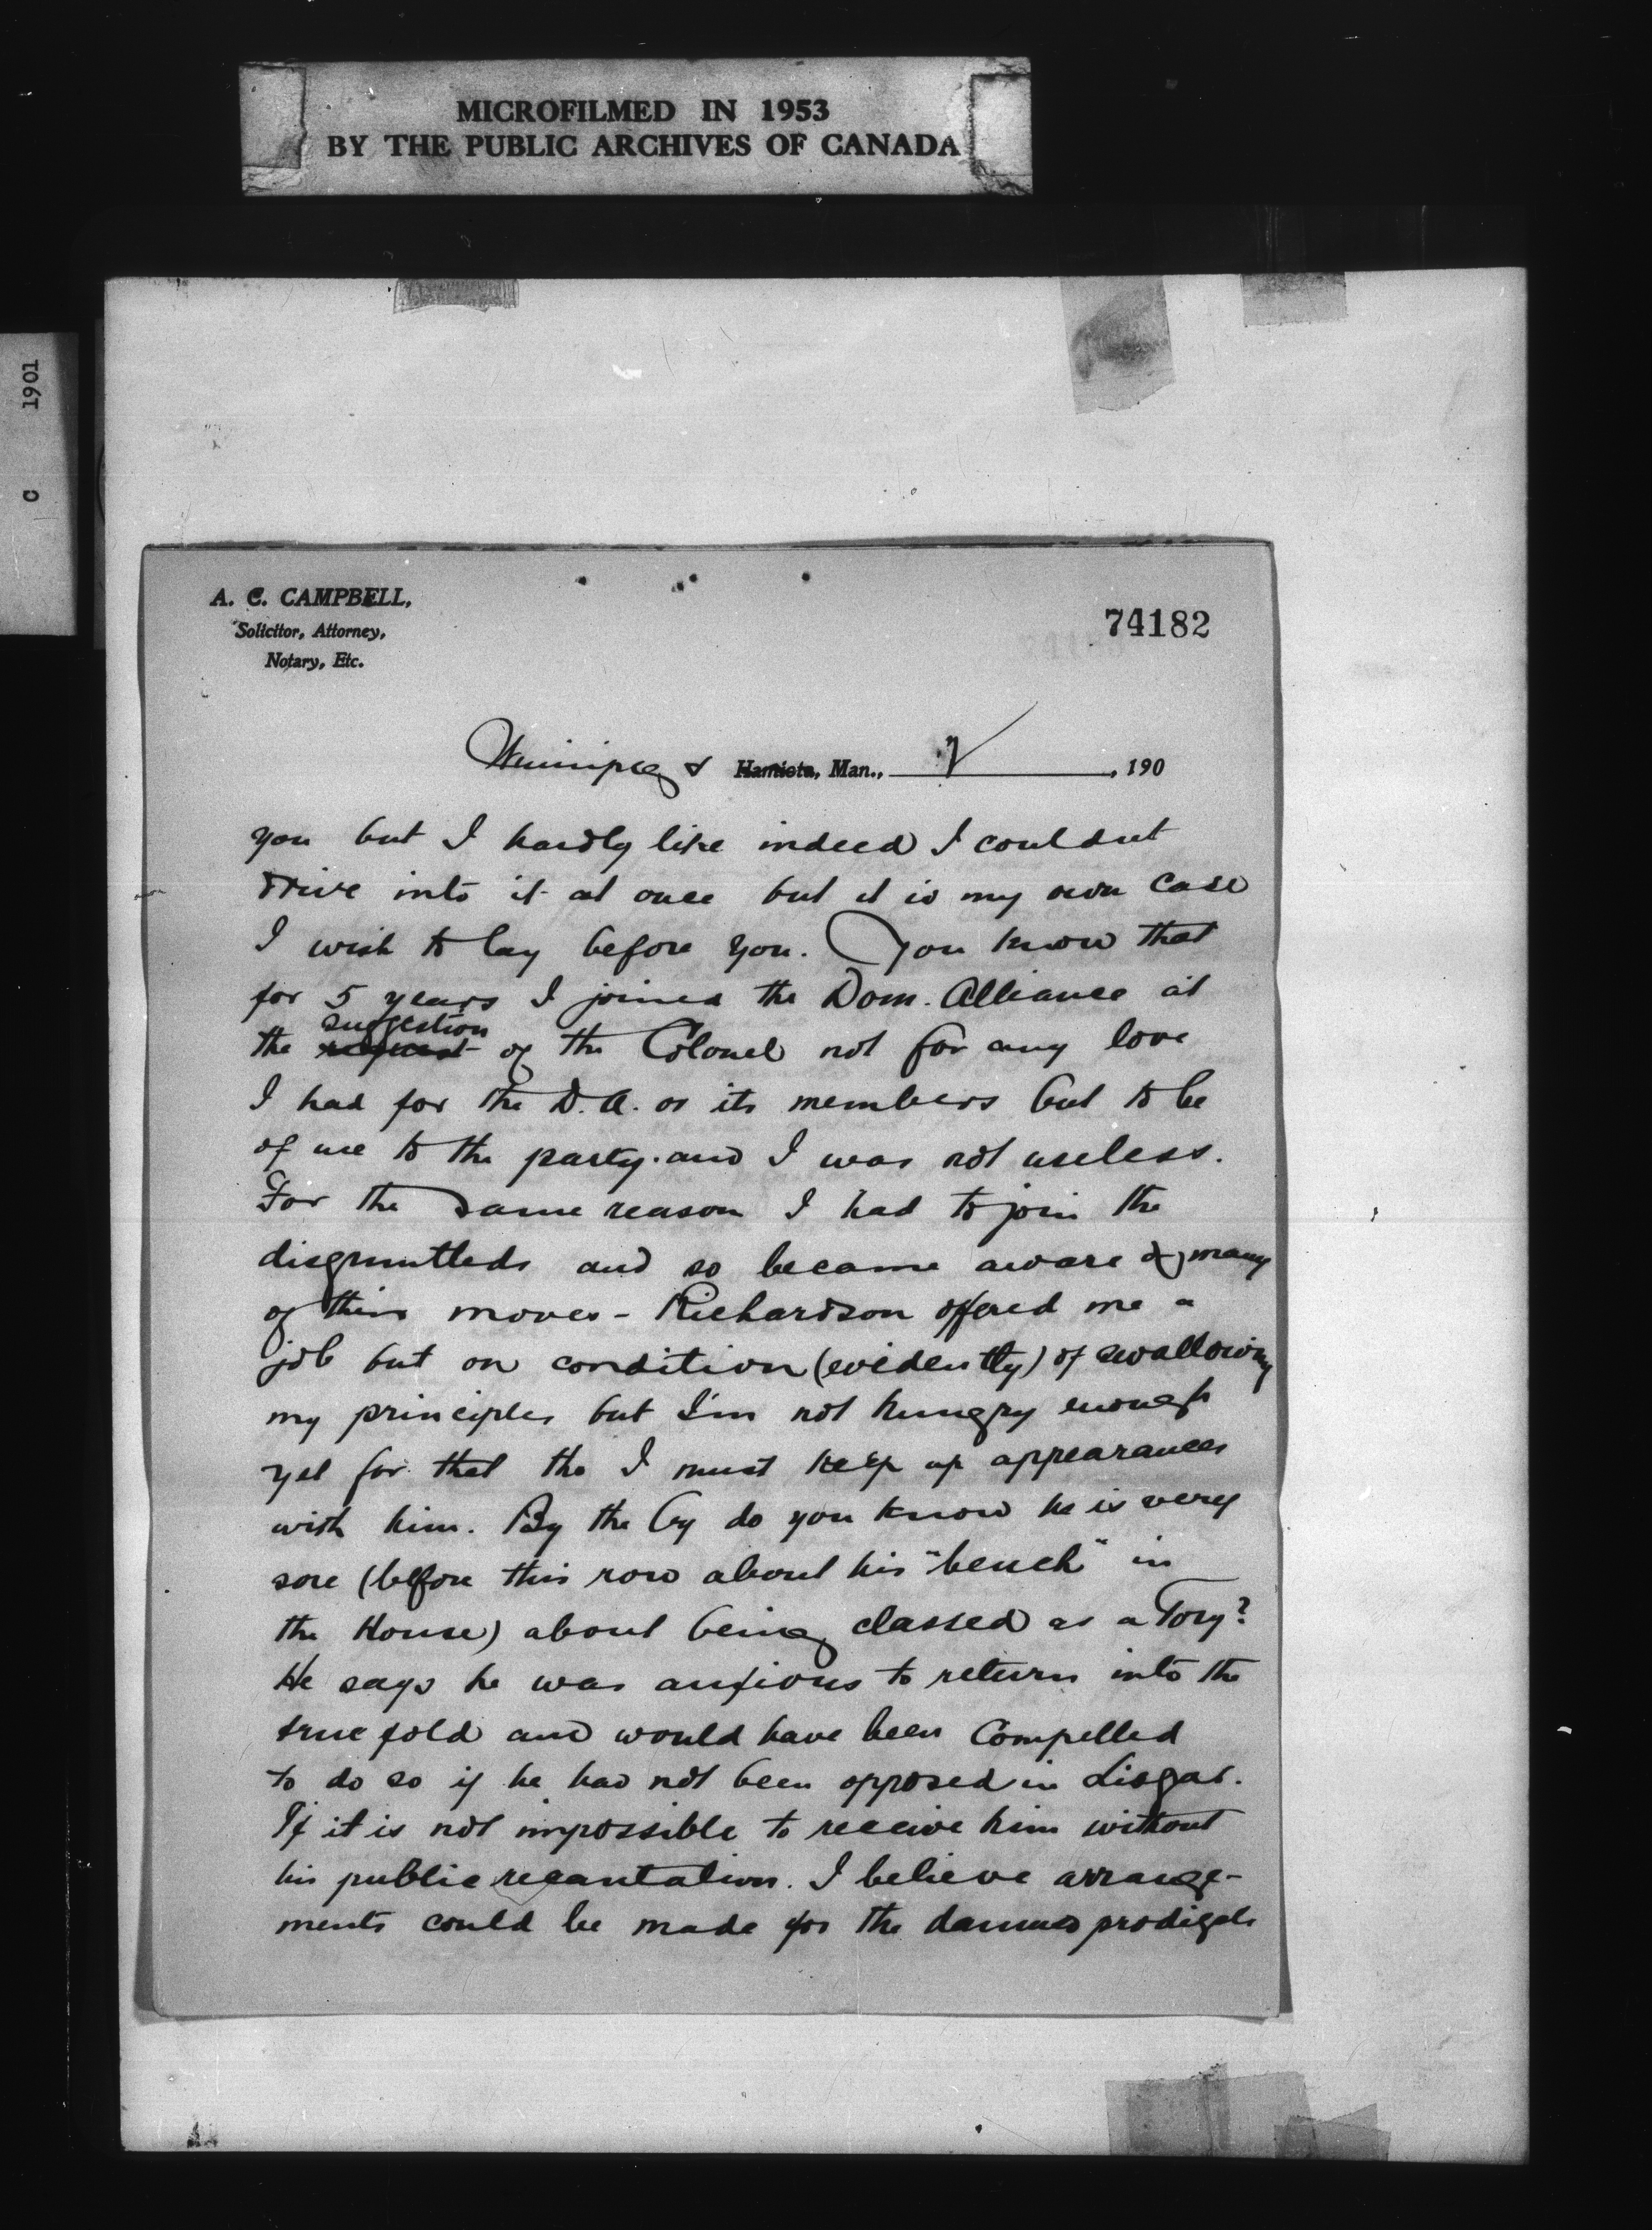 MICROFILMED IN 1953
BY THE PUBLIC ARCHIVES OF CANADA
C 1901
A. C. CAMPBELL,
Solicitor, Attorney,
Notary, Etc.
74182
Winnipeg Hamiota, Man., , 190
you but I hardly like indeed I couldnt
drive into it at once but it is my own case
I wish to lay before you. You know that
for 5 years I joined the Dom. Alliance at
suggestion
the request of the Colonel not for any love
I had for the D.A. or its members but to be
of use to the party and I was not useless.
For the same reason I had to join the
disgruntleds and so became aware of many
of their moves - Richardson offered me a
job but on condition (evidently) of swallowing
my principles but I'm not hungry enough
yet for that tho I must keep up appearances
with him. By the by do you know he is very
sore (before this row about his "bench" in
the House) about being classed as a Tory?
He says he was anxious to return into the
true fold and would have been compelled
to do so if he had not been opposed in Lisgar.
If it is not impossible to receive him without
his public recantation. I believe arrange-
ments could be made for the damned prodigals